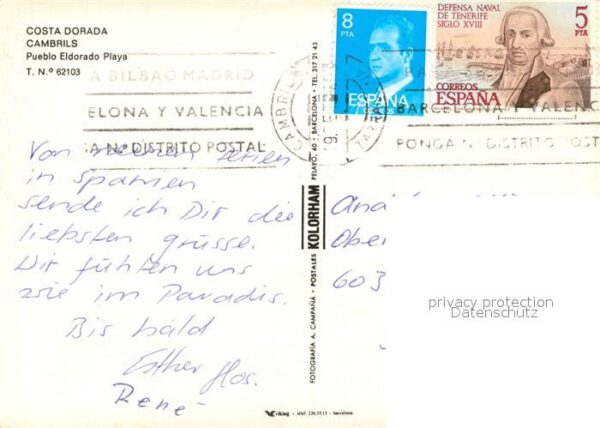 COSTA DORADA
CAMBRILS
Pueblo Eldorado Playa
T. N.º 62103
A BILBAO MADRID
ELONA Y VALENCIA
A N.º DISTRITO POSTAL
8
PTA
ESPAÑA
DEFENSA NAVAL
DE TENERIFE
SIGLO XVIII
5
PTA
CORREOS
ESPAÑA
CAMBRILS
BARCELONA Y VALENC
PONGA N. DISTRITO POST
Von meinen Ferien
in Spanien
sende ich Dir die
liebsten grüsse.
Wir fühlen uns
wie im Paradis.
Bis bald
Esther
René
FOTOGRAFIA A. CAMPAÑÁ - POSTALES KOLORHAM PELAYO, 60 - BARCELONA - TEL. 317 21 43
viking - teléf. 226.23.13 - barcelona
Ober
603
privacy protection
Datenschutz